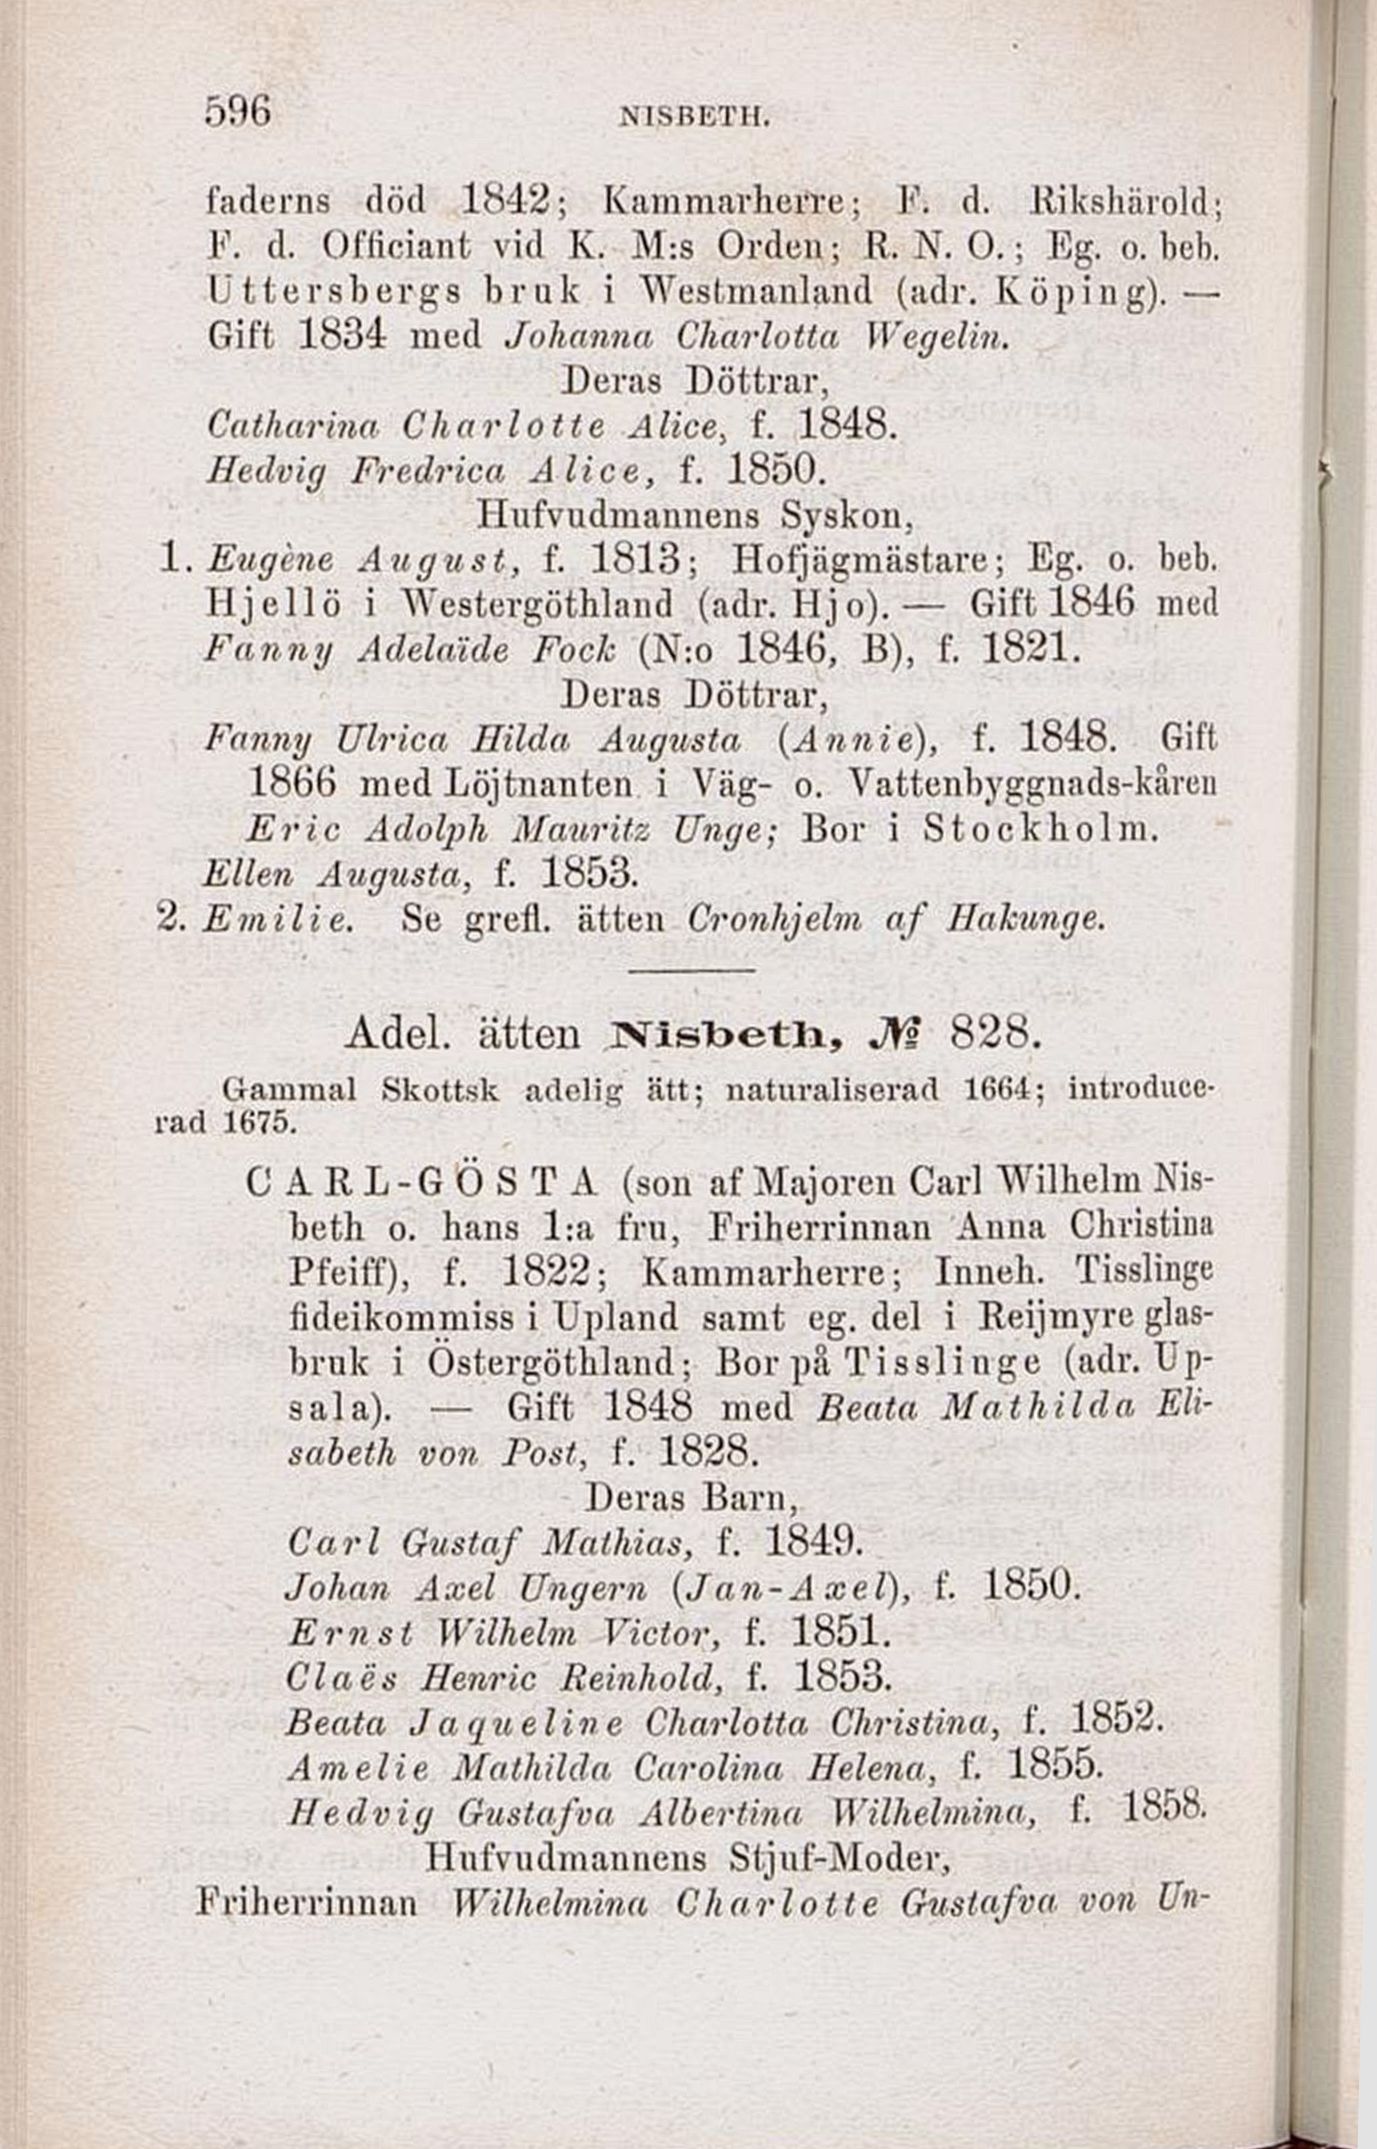 596 NISBETH.
faderns död 1842; Kammarherre; F. d. Rikshärold;
F. d. Officiant vid K. M:s Orden; R. N. O.; Eg. o. beb.
Uttersbergs bruk i Westmanland (adr. Köping). —
Gift 1834 med Johanna Charlotta Wegelin.
Deras Döttrar,
Catharina Charlotte Alice, f. 1848.
Hedvig Fredrica Alice, f. 1850.
Hufvudmannens Syskon,
1. Eugène August, f. 1813; Hofjägmästare; Eg. o. beb.
Hjellö i Westergöthland (adr. Hjo). — Gift 1846 med
Fanny Adelaïde Fock (N:o 1846, B), f. 1821.
Deras Döttrar,
Fanny Ulrica Hilda Augusta (Annie), f. 1848. Gift
1866 med Löjtnanten i Väg- o. Vattenbyggnads-kåren
Eric Adolph Mauritz Unge; Bor i Stockholm.
Ellen Augusta, f. 1853.
2. Emilie. Se grefl. ätten Cronhjelm af Hakunge.
Adel. ätten Nisbeth, № 828.
Gammal Skottsk adelig ätt; naturaliserad 1664; introduce-
rad 1675.
CARL-GÖSTA (son af Majoren Carl Wilhelm Nis-
beth o. hans 1:a fru, Friherrinnan Anna Christina
Pfeiff), f. 1822; Kammarherre; Inneh. Tisslinge
fideikommiss i Upland samt eg. del i Reijmyre glas-
bruk i Östergöthland; Bor på Tisslinge (adr. Up-
sala). — Gift 1848 med Beata Mathilda Eli-
sabeth von Post, f. 1828.
Deras Barn,
Carl Gustaf Mathias, f. 1849.
Johan Axel Ungern (Jan-Axel), f. 1850.
Ernst Wilhelm Victor, f. 1851.
Claës Henric Reinhold, f. 1853.
Beata Jaqueline Charlotta Christina, f. 1852.
Amelie Mathilda Carolina Helena, f. 1855.
Hedvig Gustafva Albertina Wilhelmina, f. 1858.
Hufvudmannens Stjuf-Moder,
Friherrinnan Wilhelmina Charlotte Gustafva von Un-